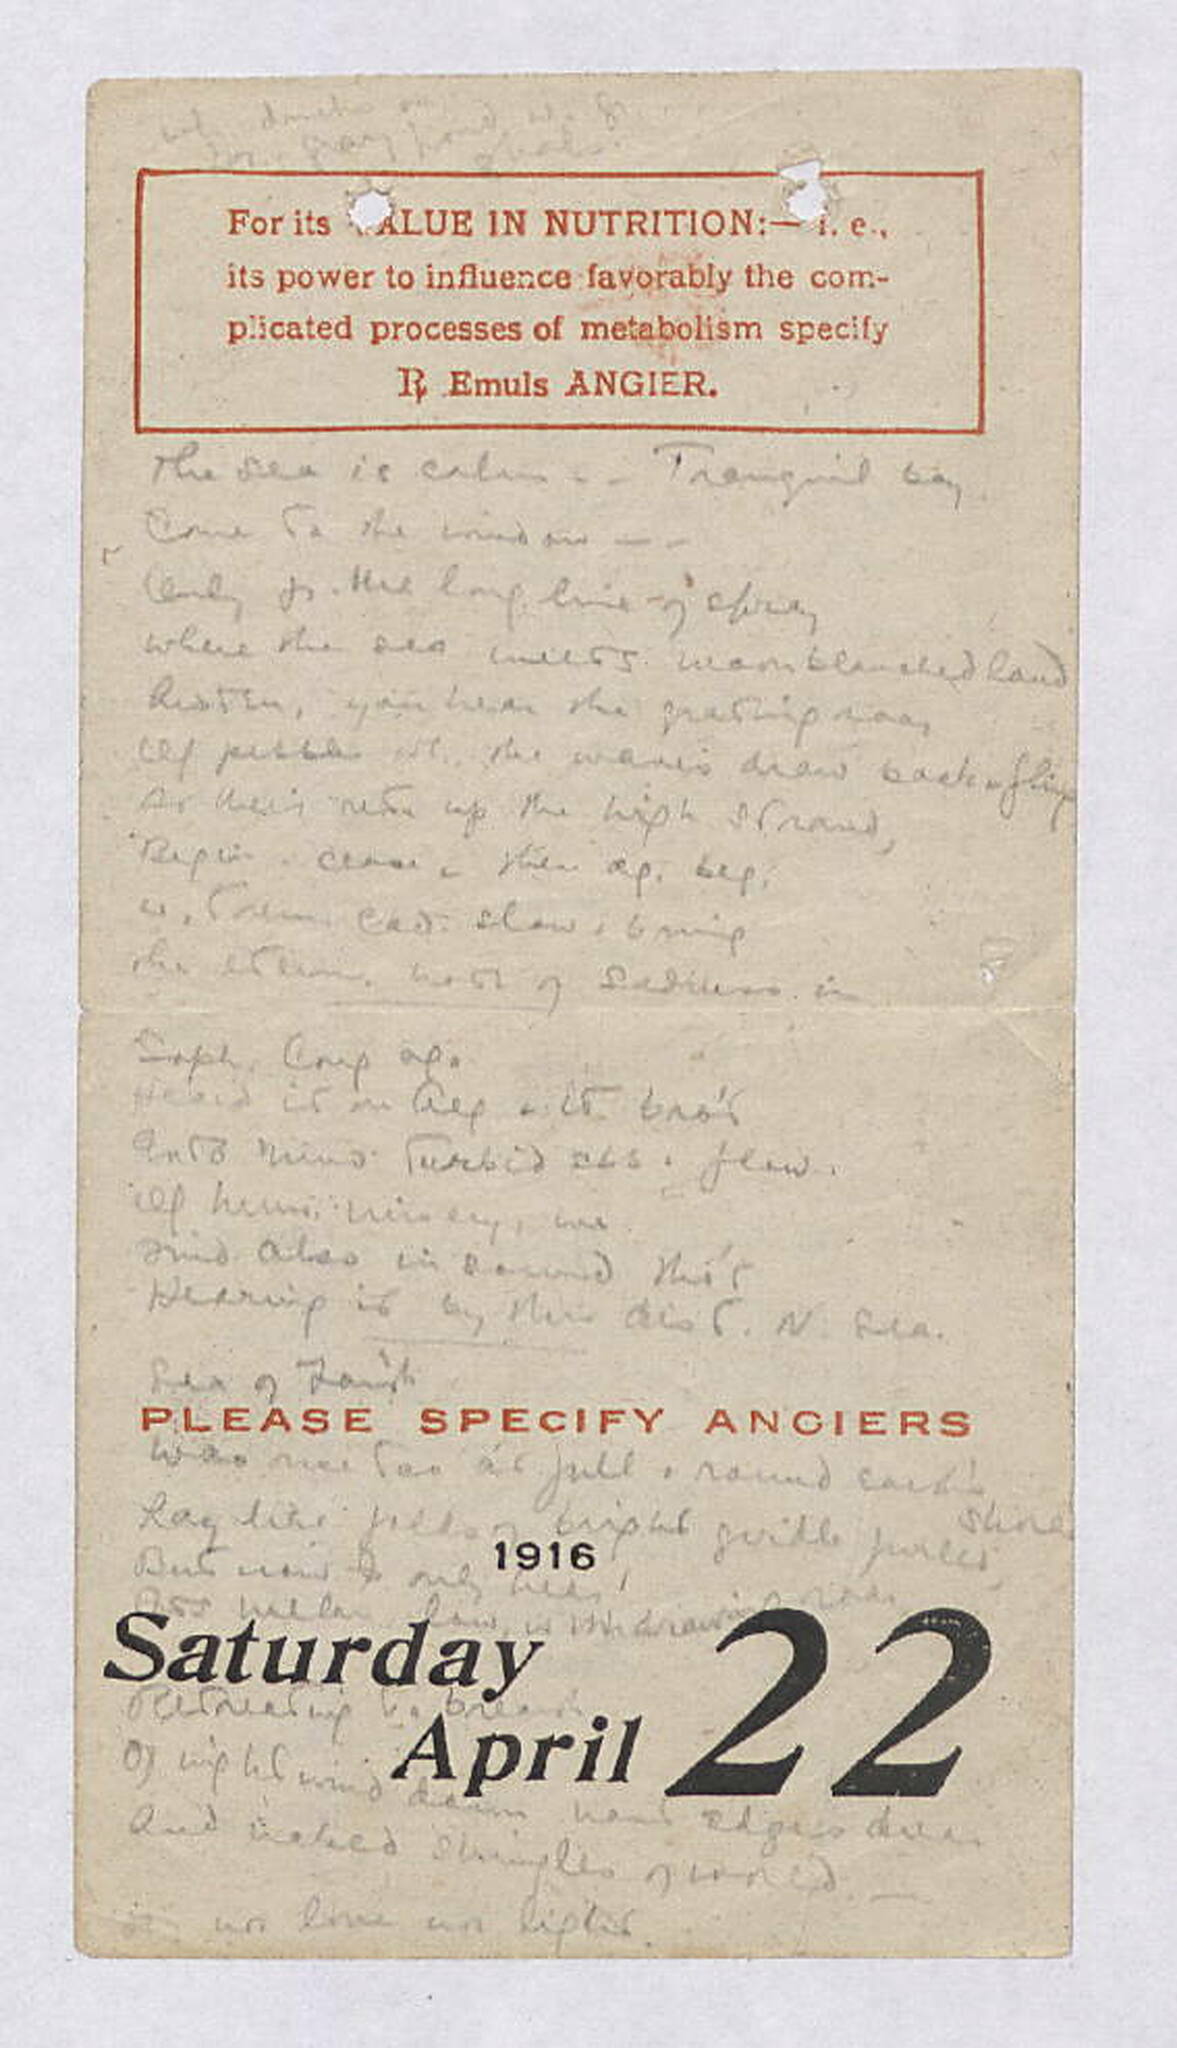 For its VALUE IN NUTRITION:— i. e.,
its power to influence favorably the com-
plicated processes of metabolism specify
℞ Emuls ANGIER.
The sea is calm - - Tranquil bay
Come to the window — -
Only fr. the long line of spray
where the sea meets moonblanched land
Listen, you hear the grating roar
Of pebbles wh. the waves draw back & fling
At their retn up the high strand,
Begin . cease , then ag. beg.
w. trem. cad. slow . bring
the etern. note of sadness in
Soph. long ago
Heard it on Aeg & it bro't
Into mind turbid ebb . flow.
Of hum. misery, we
Find also in sound tho't
Hearing it by this dist. N. Sea.
Sea of Faith
PLEASE SPECIFY ANGIERS
Was once too at full & round earth's
shore
Lay like folds of bright girdle furled
But now I only hear
Its melan. long, w. withdrawing roar
1916
Saturday
April 22
Retreating to breath
Of night wind down edges drear
And naked shingles of world. —
nor love nor light